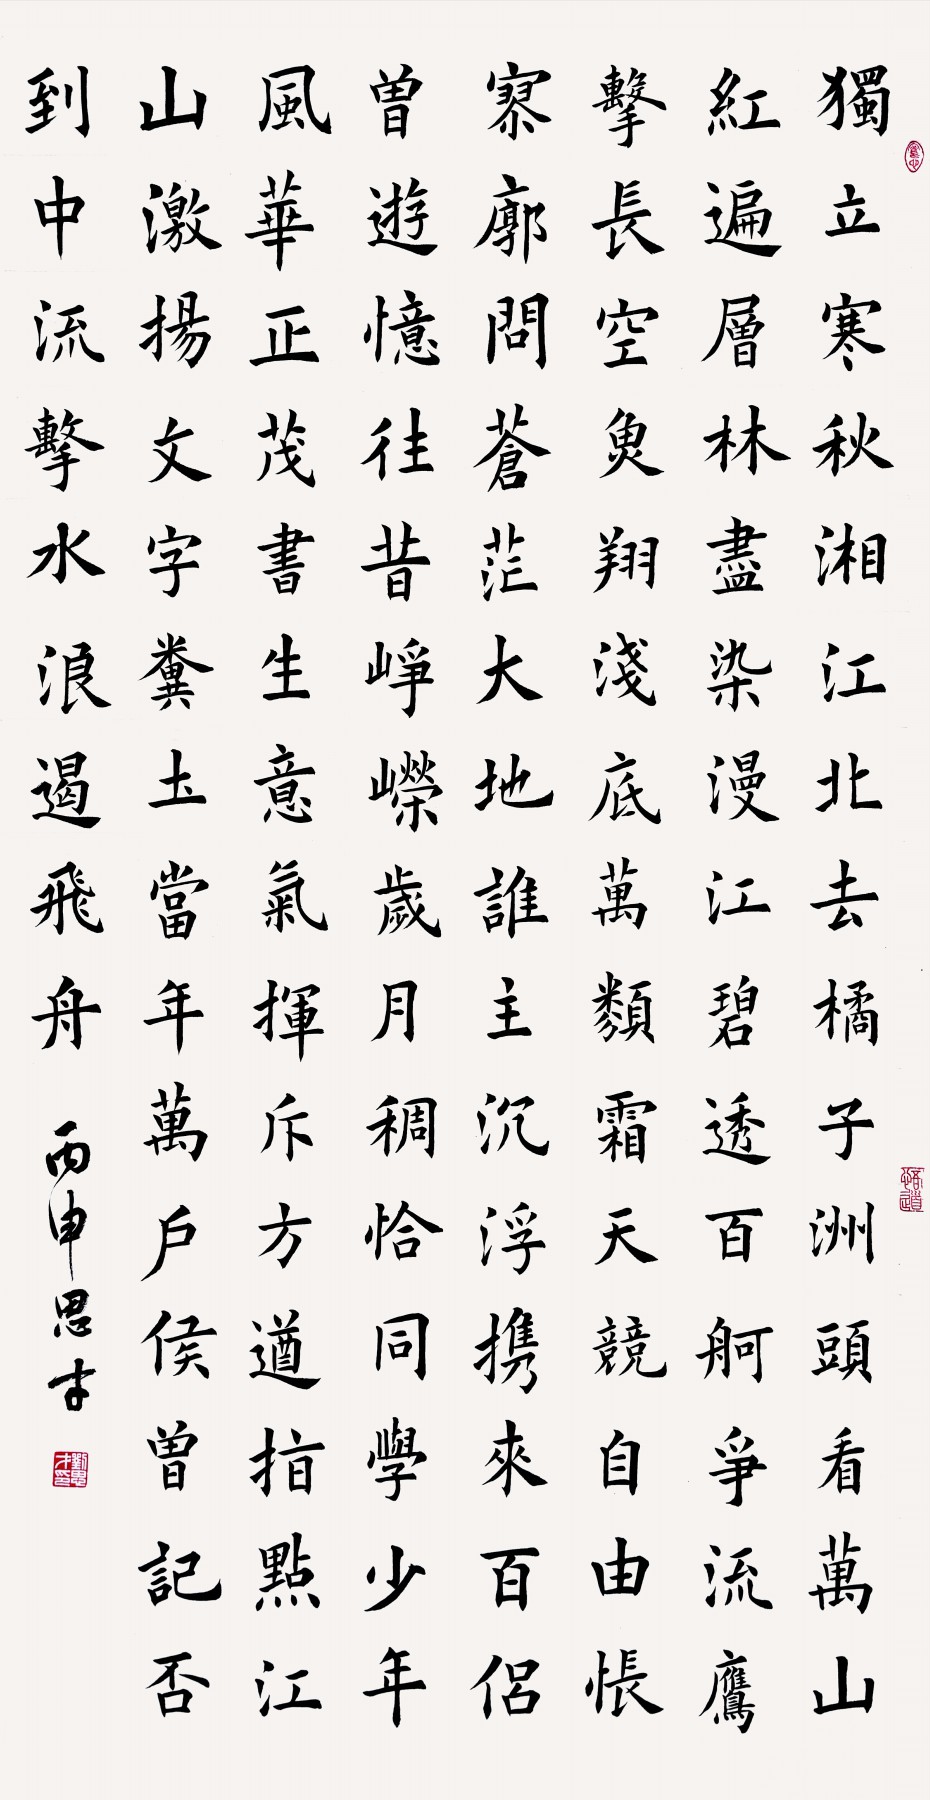 獨立寒秋湘江北去橘子洲頭看萬山
紅遍層林盡染漫江碧透百舸爭流鷹
擊長空魚翔淺底萬類霜天競自由悵
寥廓問蒼茫大地誰主沉浮携來百侶
曾遊憶往昔崢嶸歲月稠恰同學少年
風華正茂書生意氣揮斥方遒指點江
山激揚文字糞土當年萬戶侯曾記否
到中流擊水浪遏飛舟
丙申思才
劉思才印